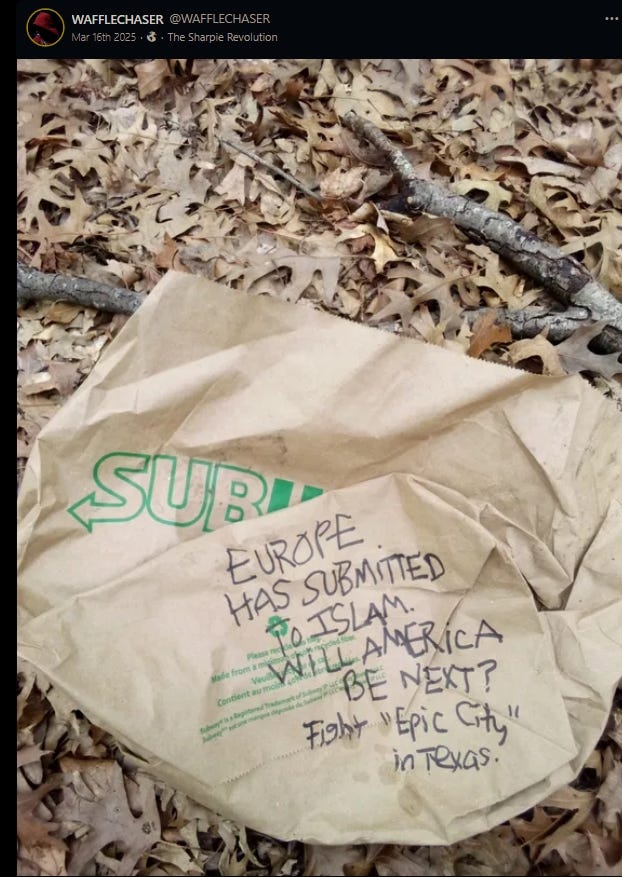 WAFFLECHASER @WAFFLECHASER
Mar 16th 2025 · · The Sharpie Revolution
SUBW
EUROPE
HAS SUBMITTED
TO ISLAM.
WILL AMERICA
BE NEXT?
Fight "Epic City"
in Texas.
Please recycle
Made from a minimum recycled fiber.
Contient au moins
Subway® is a Registered Trademark of Subway IP LLC
Subway est une marque déposée de Subway IP LLC